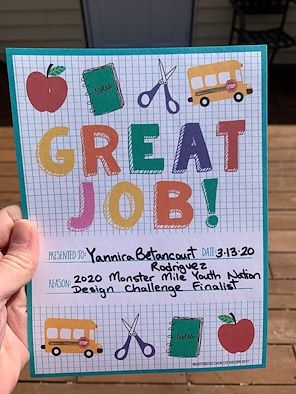 Notes
STOP
GREAT
JOB!
PRESENTED TO: Yannira Betancourt DATE: 3-13-20
Rodriguez
REASON: 2020 Monster Mile Youth Nation
Design Challenge Finalist
STOP
Notes